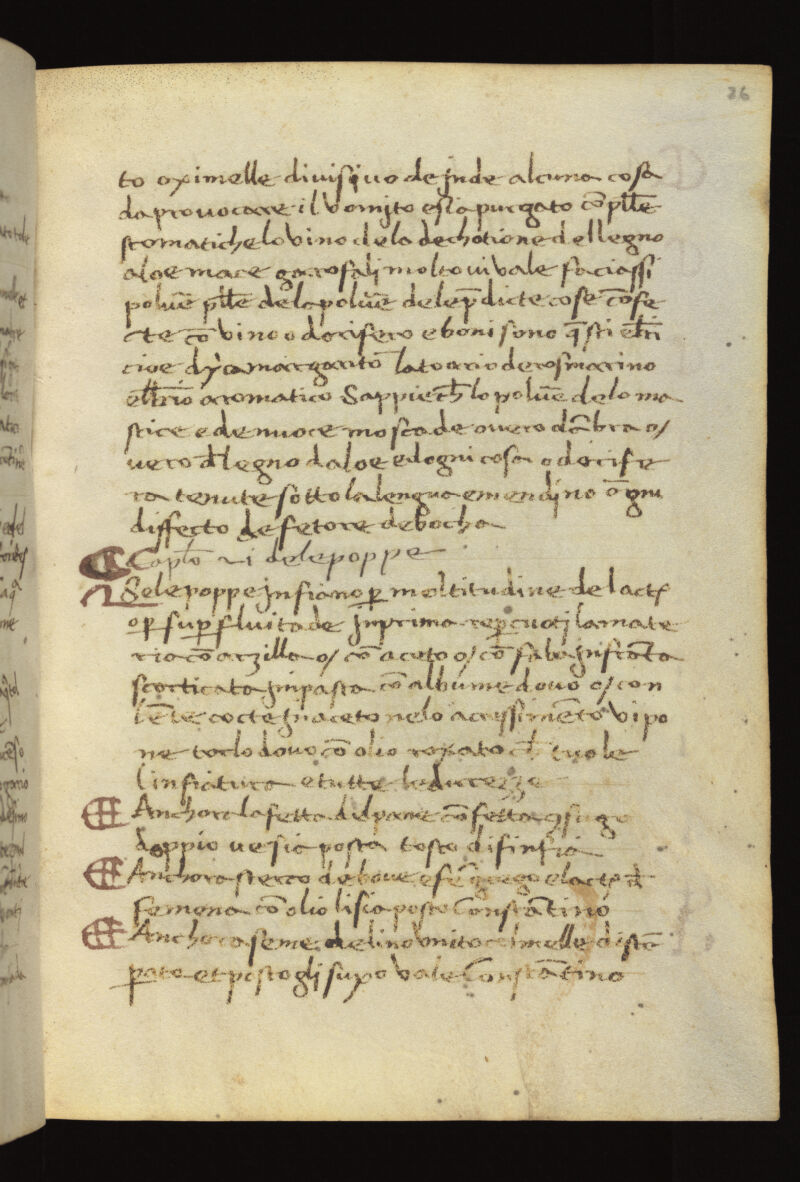 26
to oximelle diuisiuo de jnde alcuna cosa
da prouocare il vomjto e sia purgato cō pille
stomatiche lo vino de la dechotione del legno
aloe mace garofalj molto ui vale faciassi
de la poluē de le p̄dicte cose cōfe
cte cō vino odorifero e boni sono q̄sti
cioe dyamargaritō latoario de rosmarino
aromatico Sappie ch̄ lo poluē de lo ma
stice e de nuoce moscade ouero dābra o/
uero d̄ legno daloe e dogni cosa odorife
ra tenute sotto la lengua emendjno ōgni
diffecto de fetore de bocha
Caplō vi de le poppe
Se le poppe jnfiano ꝑ moltitudine de lacte
o ꝑ suꝑfluitade jnprima reꝑcuotj la mate
ria cō arzilla o/ cō aceto o/ cō faba jnfrāta
scorticata jnpasta cō albume douo o/ con
lēte cocte jn aceto ne lo acressimēto vi po
ne torlo douo cō olio roxato ch̄ tuole
linfiatura e tutte le durezze
Anchora la fetta del pane cōfetta
doppio ue sia posta tosto disinfia
Anchora sterco de boue e fē grego e lacte d̄
femena cō olio lisia posto Constātino
Anchora seme de lino vnito col melle distē
ꝑato et posto glj suxo vale Constātino